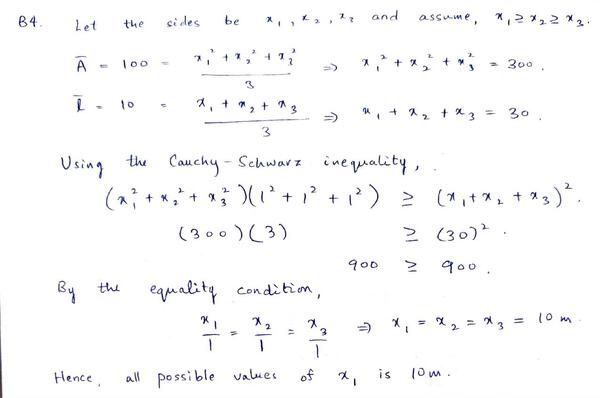 B4. Let the sides be x₁, x₂, x₃ and assume, x₁ ≥ x₂ ≥ x₃.
Ā = 100 = (x₁² + x₂² + x₃²)/3 ⇒ x₁² + x₂² + x₃² = 300.
l̄ = 10 = (x₁ + x₂ + x₃)/3 ⇒ x₁ + x₂ + x₃ = 30.
Using the Cauchy-Schwarz inequality,
(x₁² + x₂² + x₃²)(1² + 1² + 1²) ≥ (x₁ + x₂ + x₃)².
(300)(3) ≥ (30)².
900 ≥ 900.
By the equality condition,
x₁/1 = x₂/1 = x₃/1 ⇒ x₁ = x₂ = x₃ = 10 m.
Hence, all possible values of x₁ is 10m.